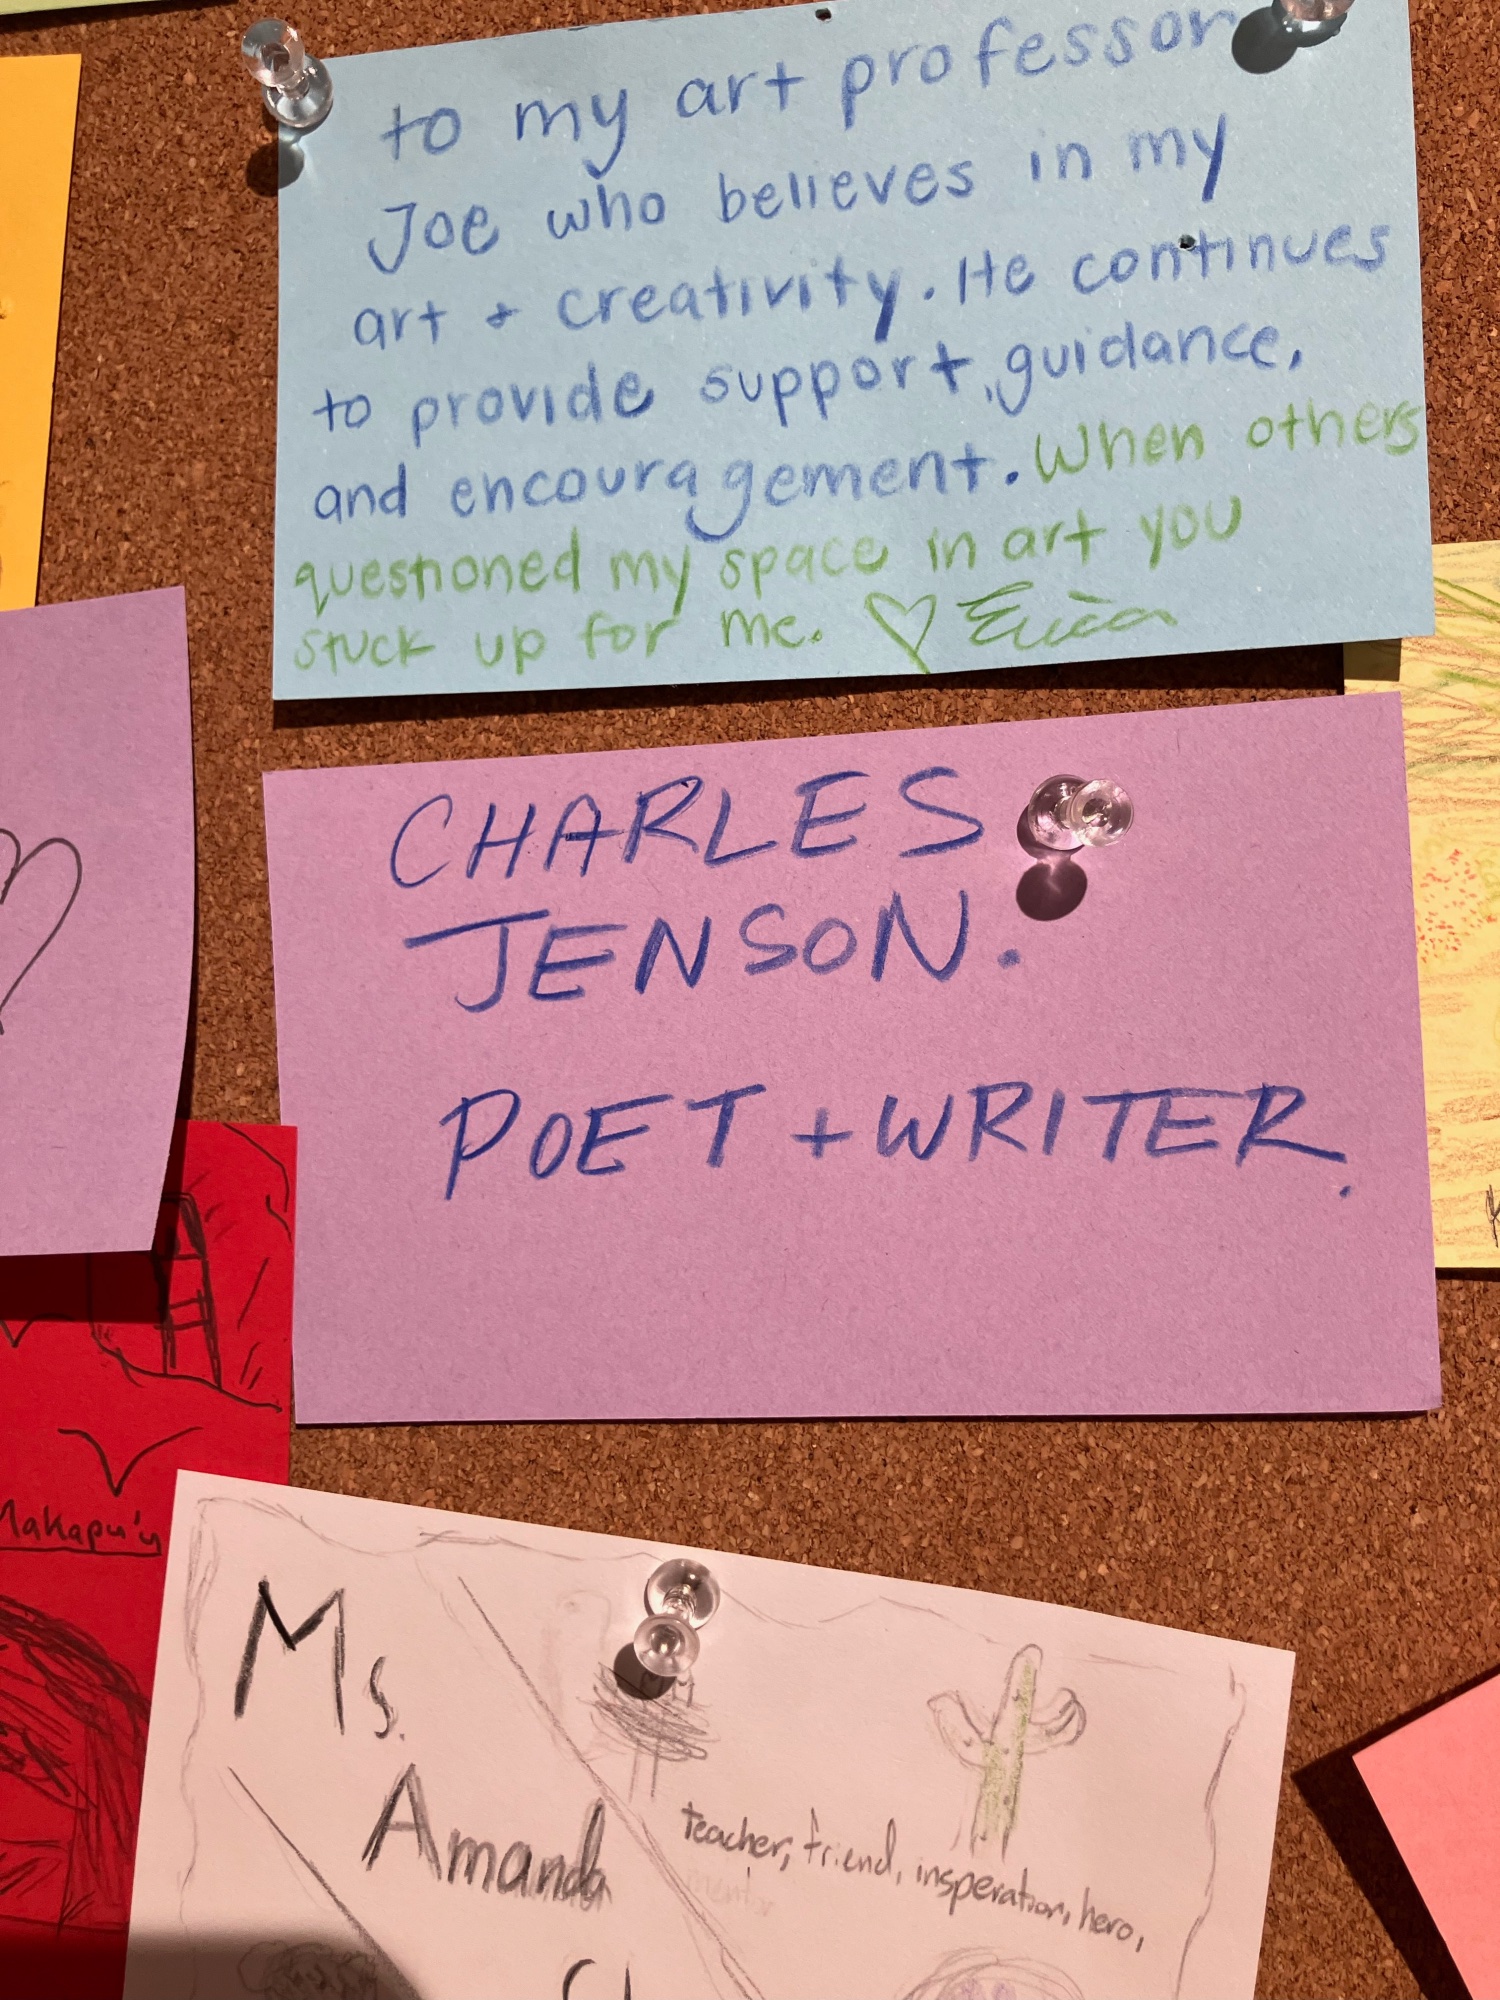 to my art professor
Joe who believes in my
art + creativity. He continues
to provide support, guidance,
and encouragement. When others
questioned my space in art you
stuck up for me. ♡ Erica
CHARLES
JENSON.
POET + WRITER.
Makapu'u
Ms.
Amanda
teacher, friend, insperation, hero,
mentor